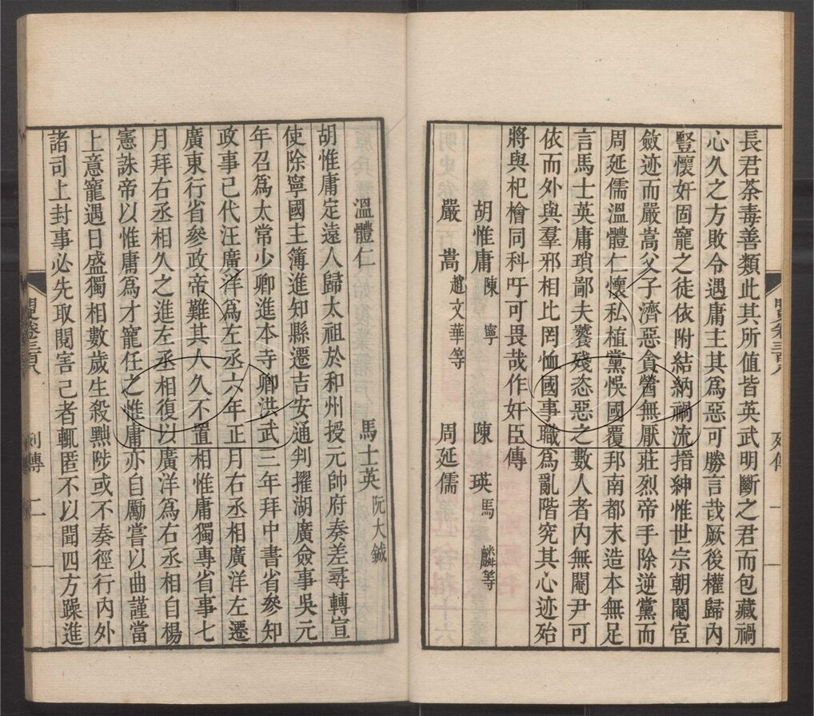 長君荼毒善類此其所值皆英武明斷之君而包藏禍
心久之方敗令遇庸主其為惡可勝言哉厥後權歸內
豎懷奸固寵之徒依附結納禍流搢紳惟世宗朝閹宦
斂迹而嚴嵩父子濟惡貪𧸖無厭莊烈帝手除逆黨而
周延儒溫體仁懷私植黨悞國覆邦南都末造本無足
言馬士英庸瑣鄙夫饕殘恣惡之數人者內無閹尹可
依而外與羣邪相比罔恤國事職為亂階究其心迹殆
將與杞檜同科吁可畏哉作奸臣傳
胡惟庸陳寧 陳瑛馬麟等
嚴嵩趙文華等 周延儒
列傳 一
溫體仁 馬士英阮大鋮
胡惟庸定遠人歸太祖於和州授元帥府奏差尋轉宣
使除寧國主簿進知縣遷吉安通判擢湖廣僉事吳元
年召為太常少卿進本寺卿洪武三年拜中書省參知
政事已代汪廣洋為左丞六年正月右丞相廣洋左遷
廣東行省參政帝難其人久不置相惟庸獨專省事七
月拜右丞相久之進左丞相復以廣洋為右丞相自楊
憲誅帝以惟庸為才寵任之惟庸亦自勵嘗以曲謹當
上意寵遇日盛獨相數歲生殺黜陟或不奏徑行內外
諸司上封事必先取閱害己者輒匿不以聞四方躁進
列傳 二